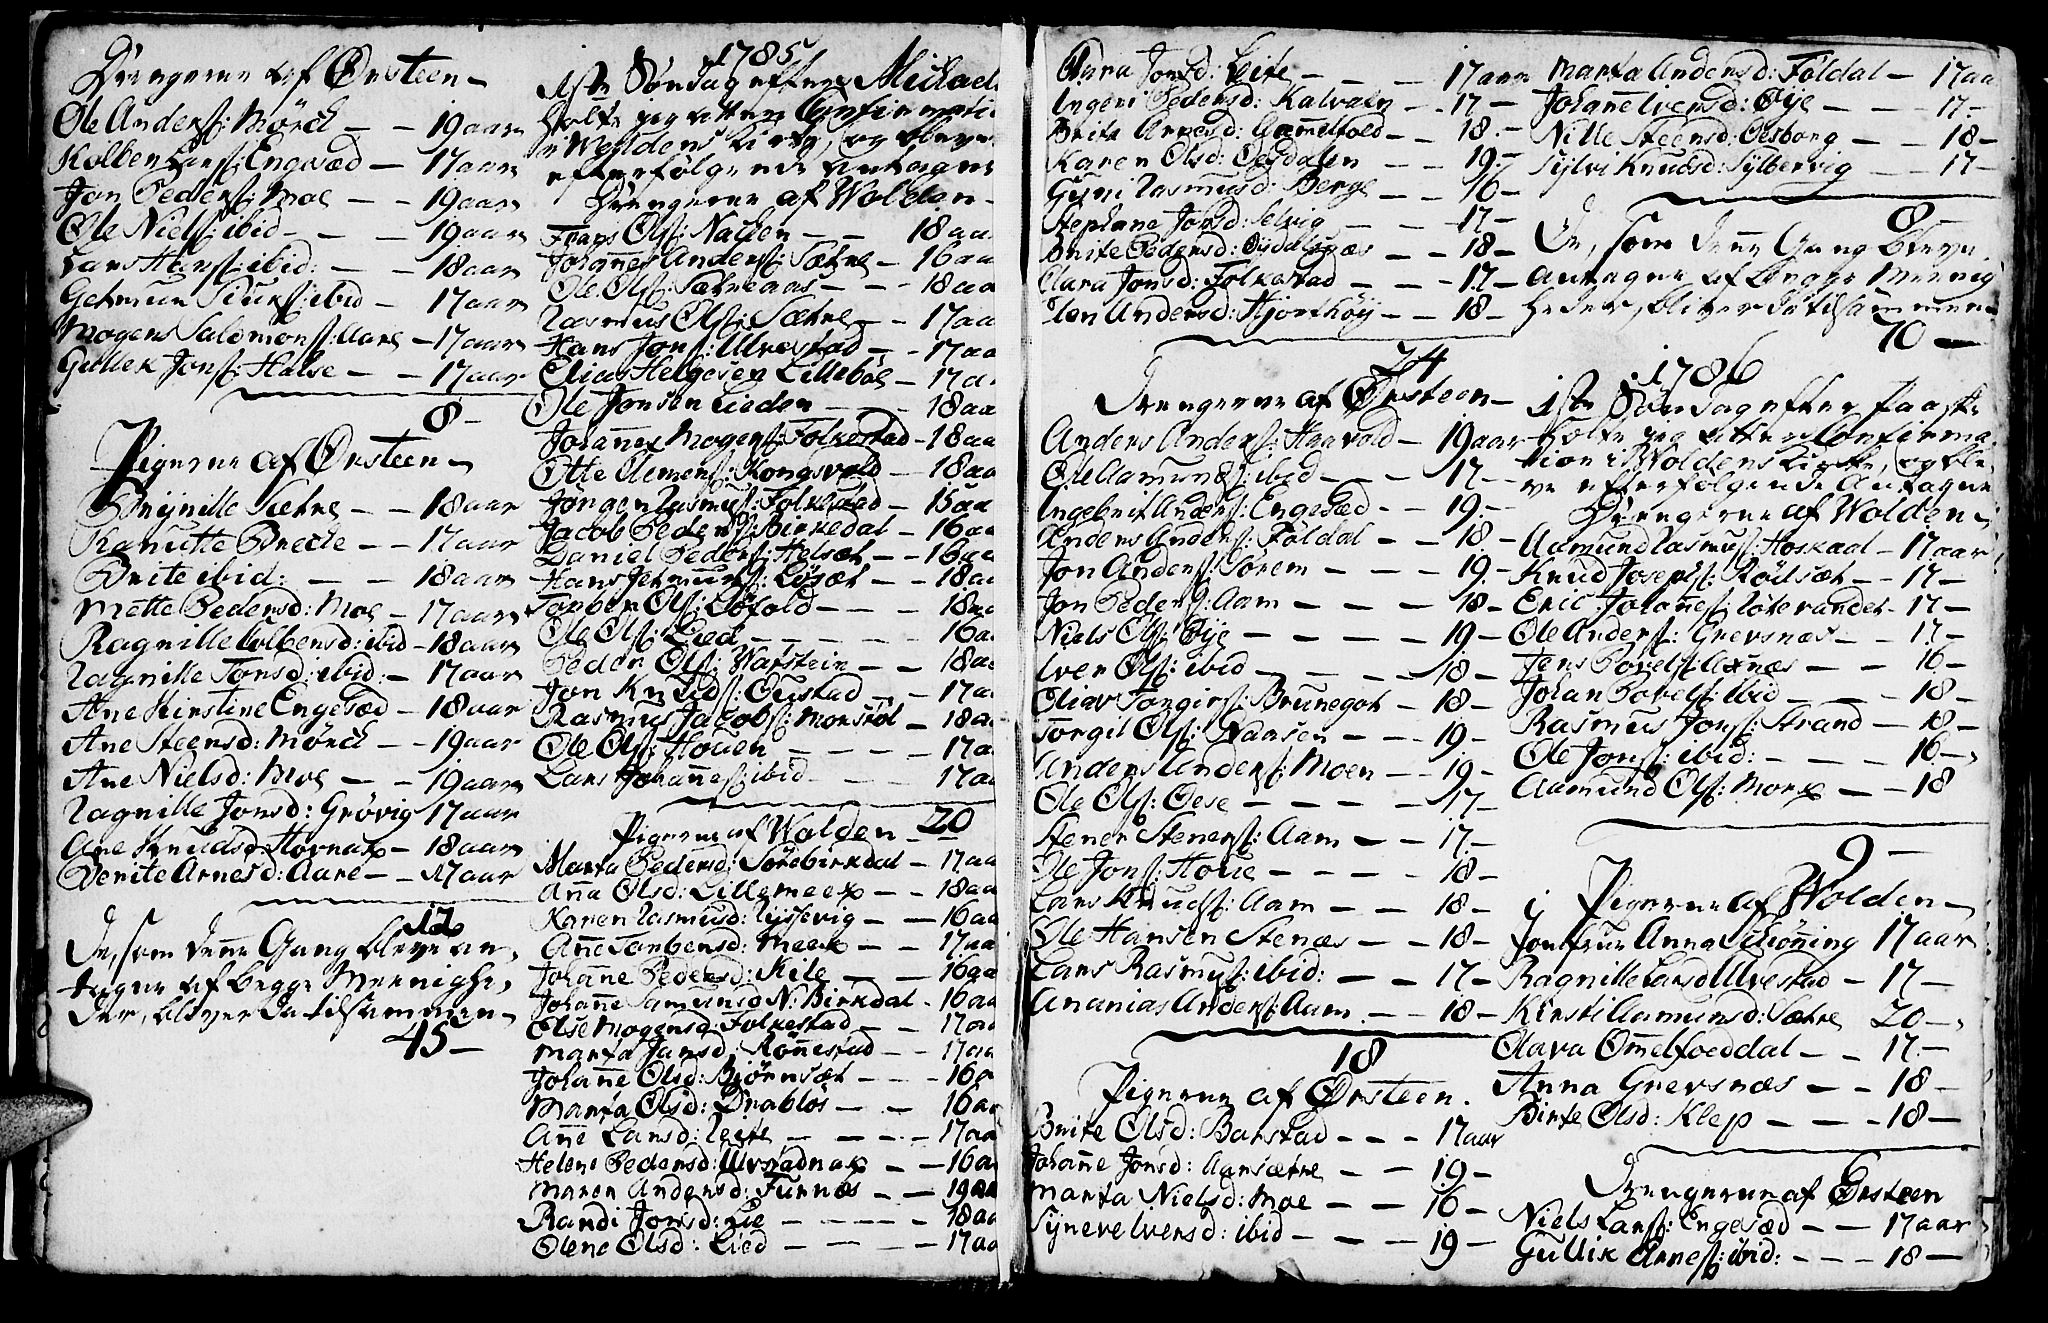 Drengerne af Ørsteen
Ole Anders: Mörck - - 19 aar
Kolben Lars: Engesæd - 17 aar
Jon Peders: Moe - - 19 aar
Ole Niels: ibid - - - 19 aar
Lars Hans: ibid: - - 18 aar
Getmun Siurs: ibid - 17 aar
Mogens Salomons: Aare - 17 aar
Gullik Jons: Halse - - 17 aar
8 -
Pigerne af Ørsteen
Brynille Sætre - - 18 aar
Ranutte Brecle - - 17 aar
Brite ibid: - - 18 aar
Mette Pedersd: Moe - 17 aar
Ragnille Colbensd: ibid - 18 aar
Ragnille Jonsd: ibid: - 17 aar
Ane Kirstine Engesæd - 18 aar
Ane Steensd: Mörck - - 19 aar
Ane Nielsd: Moe - - 19 aar
Ragnille Jonsd: Grövig 17 aar
Ane Knudsd: Hovnax - 18 aar
Berite Arnesd: Aare - - 17 aar
12
De, som denne Gang bleve an,
tagne af begge Meenighe,
der, bliver da tilsammen
45 -
1785
1ste Söndag efter Michael
holte jeg atter Confirmati
i Woldens Kirke, og bleve
efterfölgende antagne
Drengerne af Wolden -
Frans Ols: Nacken - - 18 aa
Johannes Anders: Sætre - 16 aa
Ole Ols: Sætreaas - - - 18 aa
Rasmus Ols: Sætre - - 17 aa
Hans Jons: Ulvestad - - 17 aa
Elias Helgesen Lilleböe - 17 a
Ole Jonsen Lieden - - - 18 aa
Johannes Mogens: Folkestad - 18 aa
Otte Clemens: Kongsvold - 18 aa
Jörgen Rasmus: Folkestad - 15 aa
Jacob Peders: Birkedal - 16 aa
Daniel Peders: Helsæt - - 16 aa
Hans Jetmuns: Lösæt - - 18 aa
Torben Ols: Löfold - - - 18 aa
Ole Ols: Lied - - - - 16 aa
Peder Ols: Watstein - - 18 aa
Jon Knuds: Oustad - - 17 aa
Rasmus Jacobs: Morsföl - 18 aa
Ole Ols: Houen - - - - 17 a
Lars Johannes: ibid - - - 17 aa
20
Pigerne af Wolden
Marta Pedersd: Sörebirkdal - 17 aa
Anna Olsd: Lillemeex - - 18 aa
Karen Rasmusd: Ryssevig - - 16 aa
Anne Torbensd: Meex - - 17 aa
Johanne Pedersd: Kile - - 16 aa
Johanne Samunsd: N: Birkdal - 16 aa
Else Mogensd: Folkestad - - 17 aa
Marta Jansd: Rönnestad - - 17 aa
Johanne Olsd: Björnsæt - - - 16 a
Marta Olsd: Drablös - - - 16 aa
Anne Larsd: Reete - - - - 17 aa
Helene Pedersd: Ulvstadnax - - 16 aa
Maren Andersd: Furnæs - - 19 aa
Randi Jonsd: Lie - - - - 18 aa
Olene Olsd: Lied - - - - 17 aa
Clara Jonsd: Leite - - - 17 aar
Ingeri Pedersd: Kalvatn - - 17 -
Brite Arnesd: Gammelvold - - 18 -
Karen Olsd: Oesdalen - - 19 -
Guri Rasmusd: Berge - - 16 -
Stephane Jonsd: Selvig - - 17 -
Brite Pedersd: Öydalsnæs - - 18 -
Clara Jonsd: Folkestad - - 17 -
Elen Andersd: Hjorthöy - - 18 -
24
Drengerne af Örsteen -
Anders Anders: Haavold - 19 aar
Ole Aamunds: ibid - - - 17 -
Ingebrit Anders: Engesæd - - 19 -
Anders Anders: Földal - - 18 -
Jon Anders: Sörem - - - 19 -
Jon Peders: Aam - - - - 18 -
Niels Ols: Öye - - - - - 19 -
Iver Ols: ibid - - - - - 18 -
Elias Torgirs: Brunegot - 18 -
Torgil Ols: Vaasen - - - 19 -
Anders Anders: Moen - - 19 -
Ole Ols: Oese - - - - - 17 -
Stener Steners: Aam - - 17 -
Ole Jons: Houe - - - - 18 -
Lars Knuds: Aam - - - 18 -
Ole Hansen Stenæs - - - 18 -
Lars Rasmus: ibid: - - - 17 -
Ananias Anders: Aam - - - 18 -
18
Pigerne af Örsteen.
Brite Olsd: Barstad - - - 17 aar
Johanne Jonsd: Aarsætre - - 19 -
Marta Nielsd: Moe - - - 16 -
Synneve Iversd: ibid - - - 19 -
Marta Andersd: Földal - 17 aa
Johanne Iversd: Öye - - 17 -
Nille Steensd: Oesborg - - 18 -
Sylvi Knudsd: Sylbervig - - 17 -
8 -
De, som denne Gang bleve
antagne af begge Meenig
heder, bliver da tilsammen
70 -
1786
1ste Söndag efter Paaske
holte jeg atter Confirma,
tion i Woldens Kirke, og ble,
ve efterfölgende Antagne
Drengerne af Wolden
Aamund Rasmus: Hoskad - 17 aar
Knud Joseps: Rödsæt - - 17 -
Eric Johannes: Rötevandet - 17 -
Ole Anders: Grevsnæs - - 17 -
Jens Povels: Axnæs - - 16 -
Johan Povels: Ibid - - - 18 -
Rasmus Jons: Strand - 18 -
Ole Jons: ibid: - - - - 16 -
Aamund Ols: Morx - - 18
9 -
Pigerne af Wolden
Jomfrue Anna Schöning 17 aar
Ragnille Larsd: Ulvestad - 17 -
Kirsti Aamunsd: Sætre 20 -
Clara Ommelfoeddal - - 17 -
Anna Grevsnæs - - 18 -
Birte Olsd: Klep - - - 18 -
Drengerne af Örsteen
Niels Lars: Engesæd - - 17 aar
Gullik Arnes: ibid: - - - 18 -